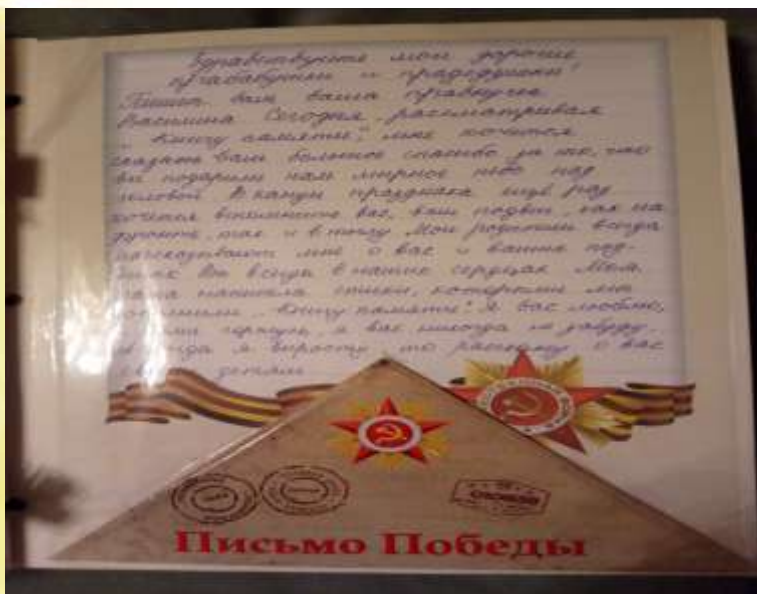 Здравствуйте мои дорогие
прабабушки и прадедушки!
Пишет вам ваша правнучка
Василина Сегодня, рассматривая
"Книгу памяти", мне хочится
сказать вам большое спасибо за то, что
вы подарили нам мирное небо над
головой. В канун праздника ещё раз
хочется вспомнить вас, ваш подвиг, как на
фронте, так и в тылу Мои родители всегда
рассказывают мне о вас и ваших под-
вигах Вы всегда в наших сердцах Мам
написала стихи, которыми мы
"Книгу памяти". Я вас люблю,
я вас никогда не забуду.
когда я вырасту, то расскажу о вас
детям
Письмо Победы